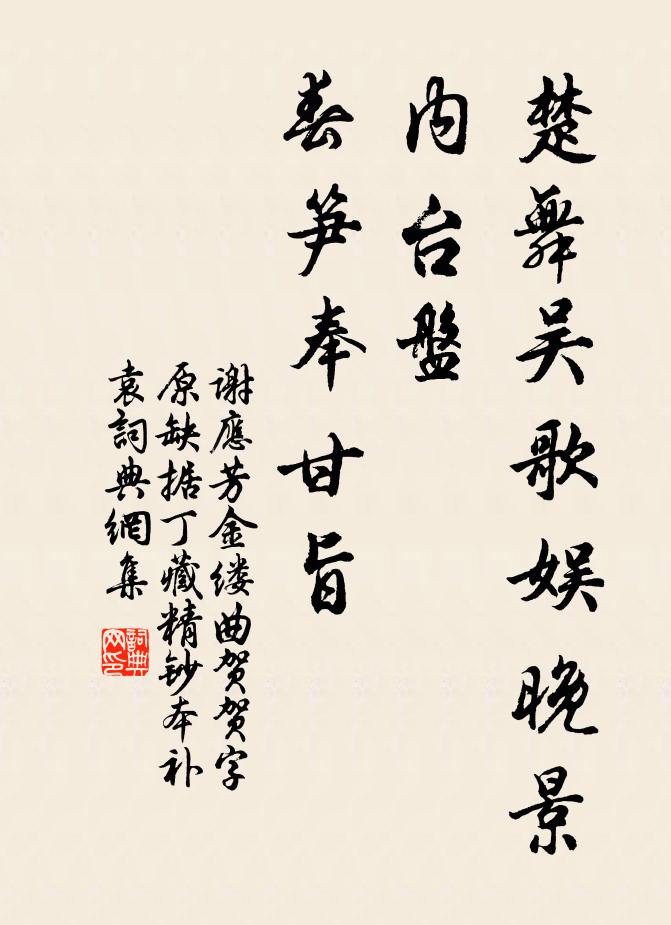 楚舞吴歌娱晚景
内台盤
春笋奉甘旨
谢應芳金缕曲贺贺字
原缺据丁藏精钞本补
袁詞典網集
詞典网印